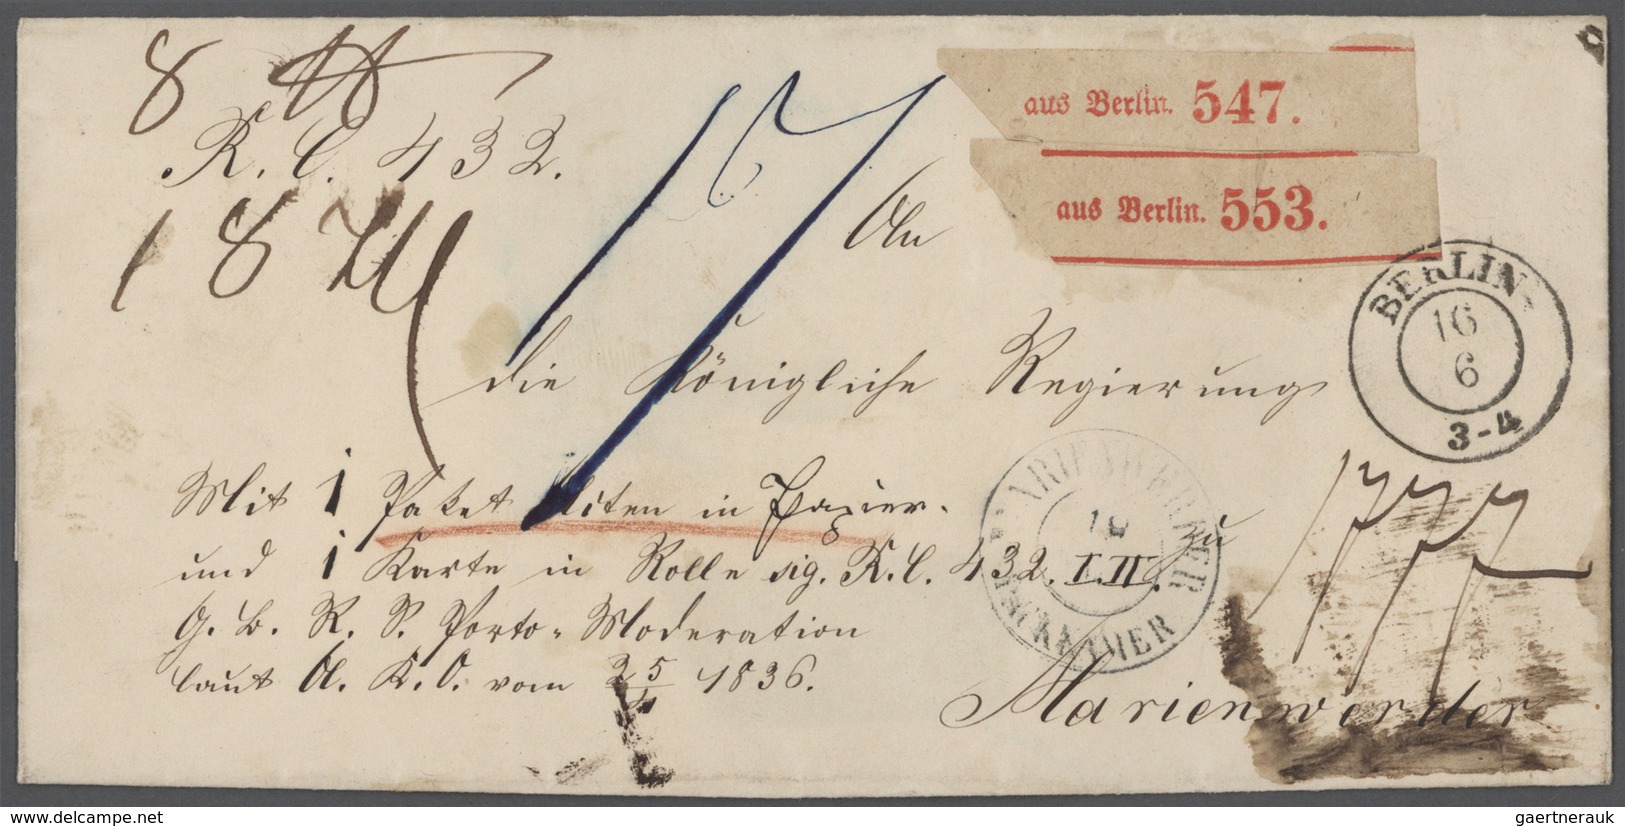 8
R. C. 432.
18
aus Berlin. 547.
aus Berlin. 553.
An
BERLIN
16
6
3-4
die Königliche Regierung
Mit 1 Paket Akten in Papier.
und 1 Karte in Rolle sig. R. C. 432. I. II.
G. B. R. S. Porto-Moderation
laut A. K. O. vom 25/4 1836.
zu
MARIENWERDER
Marienwerder
www.delcampe.net
gaertnerauk